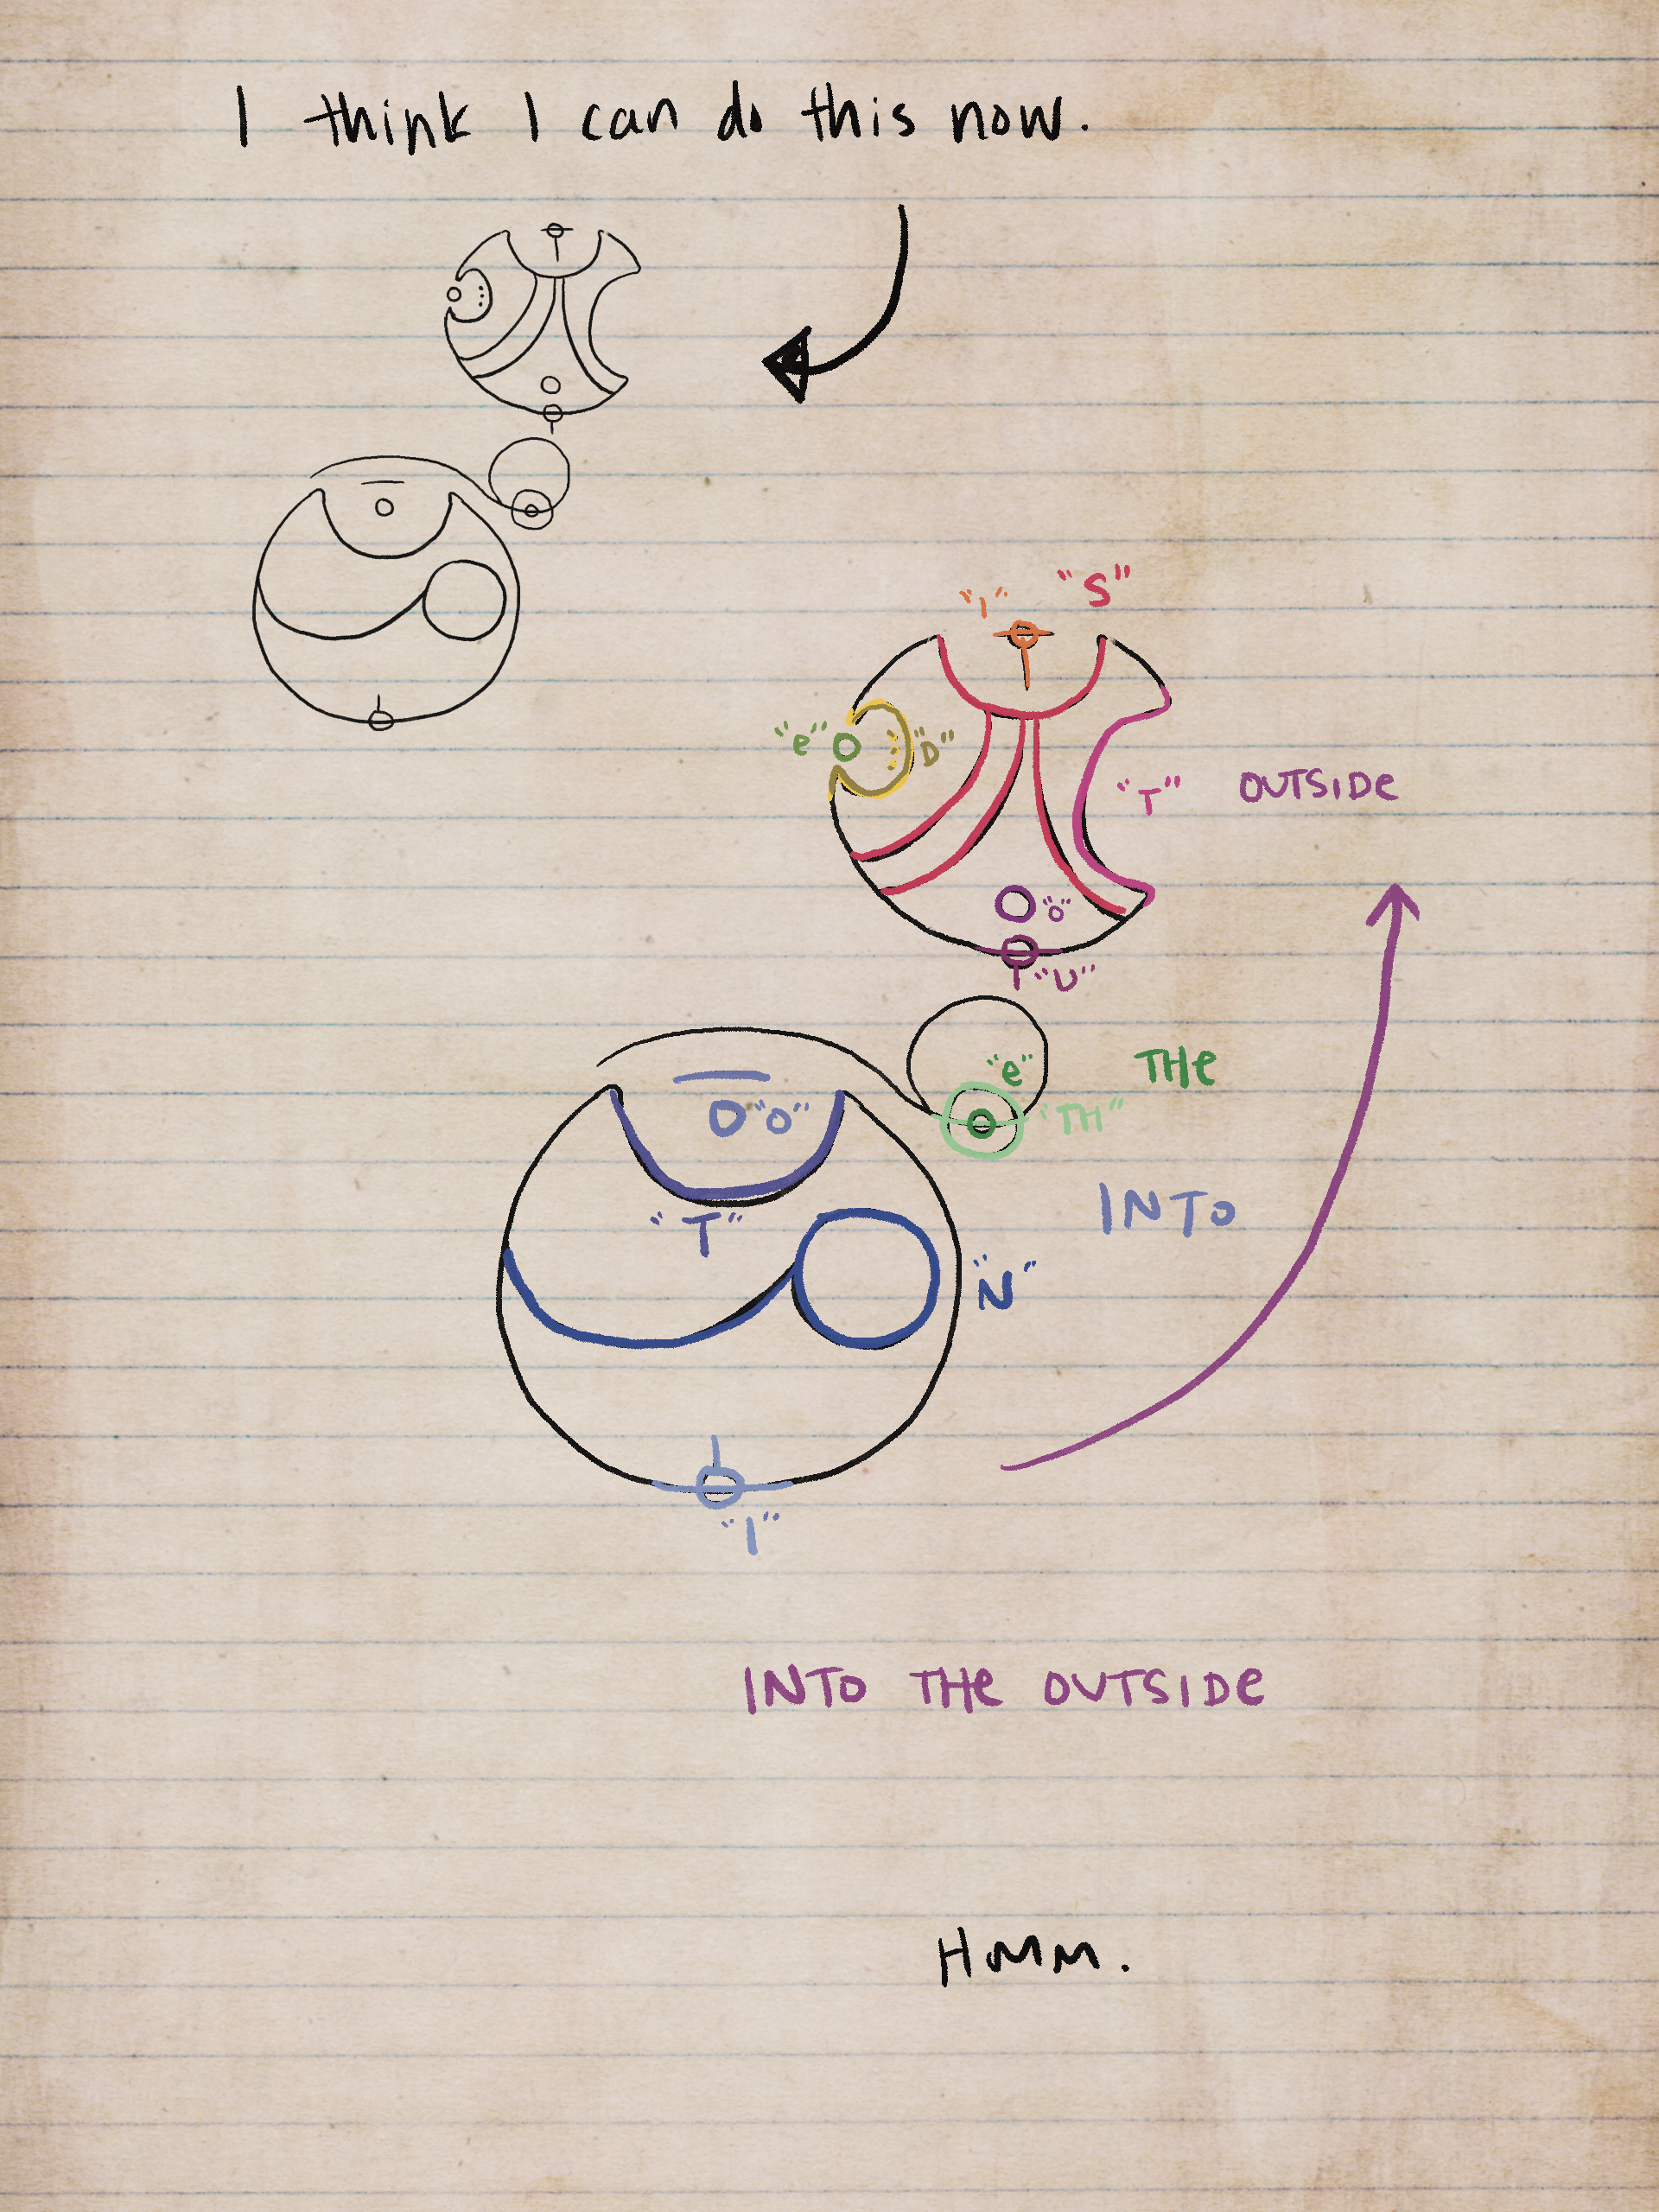 I think I can do this now.
"I" "S"
"e" "D"
"T" OUTSIDe
"O"
"U"
"e" THe
"O" "TH"
INTO
"T"
"N"
"I"
INTO THe OUTSIDe
HMM.